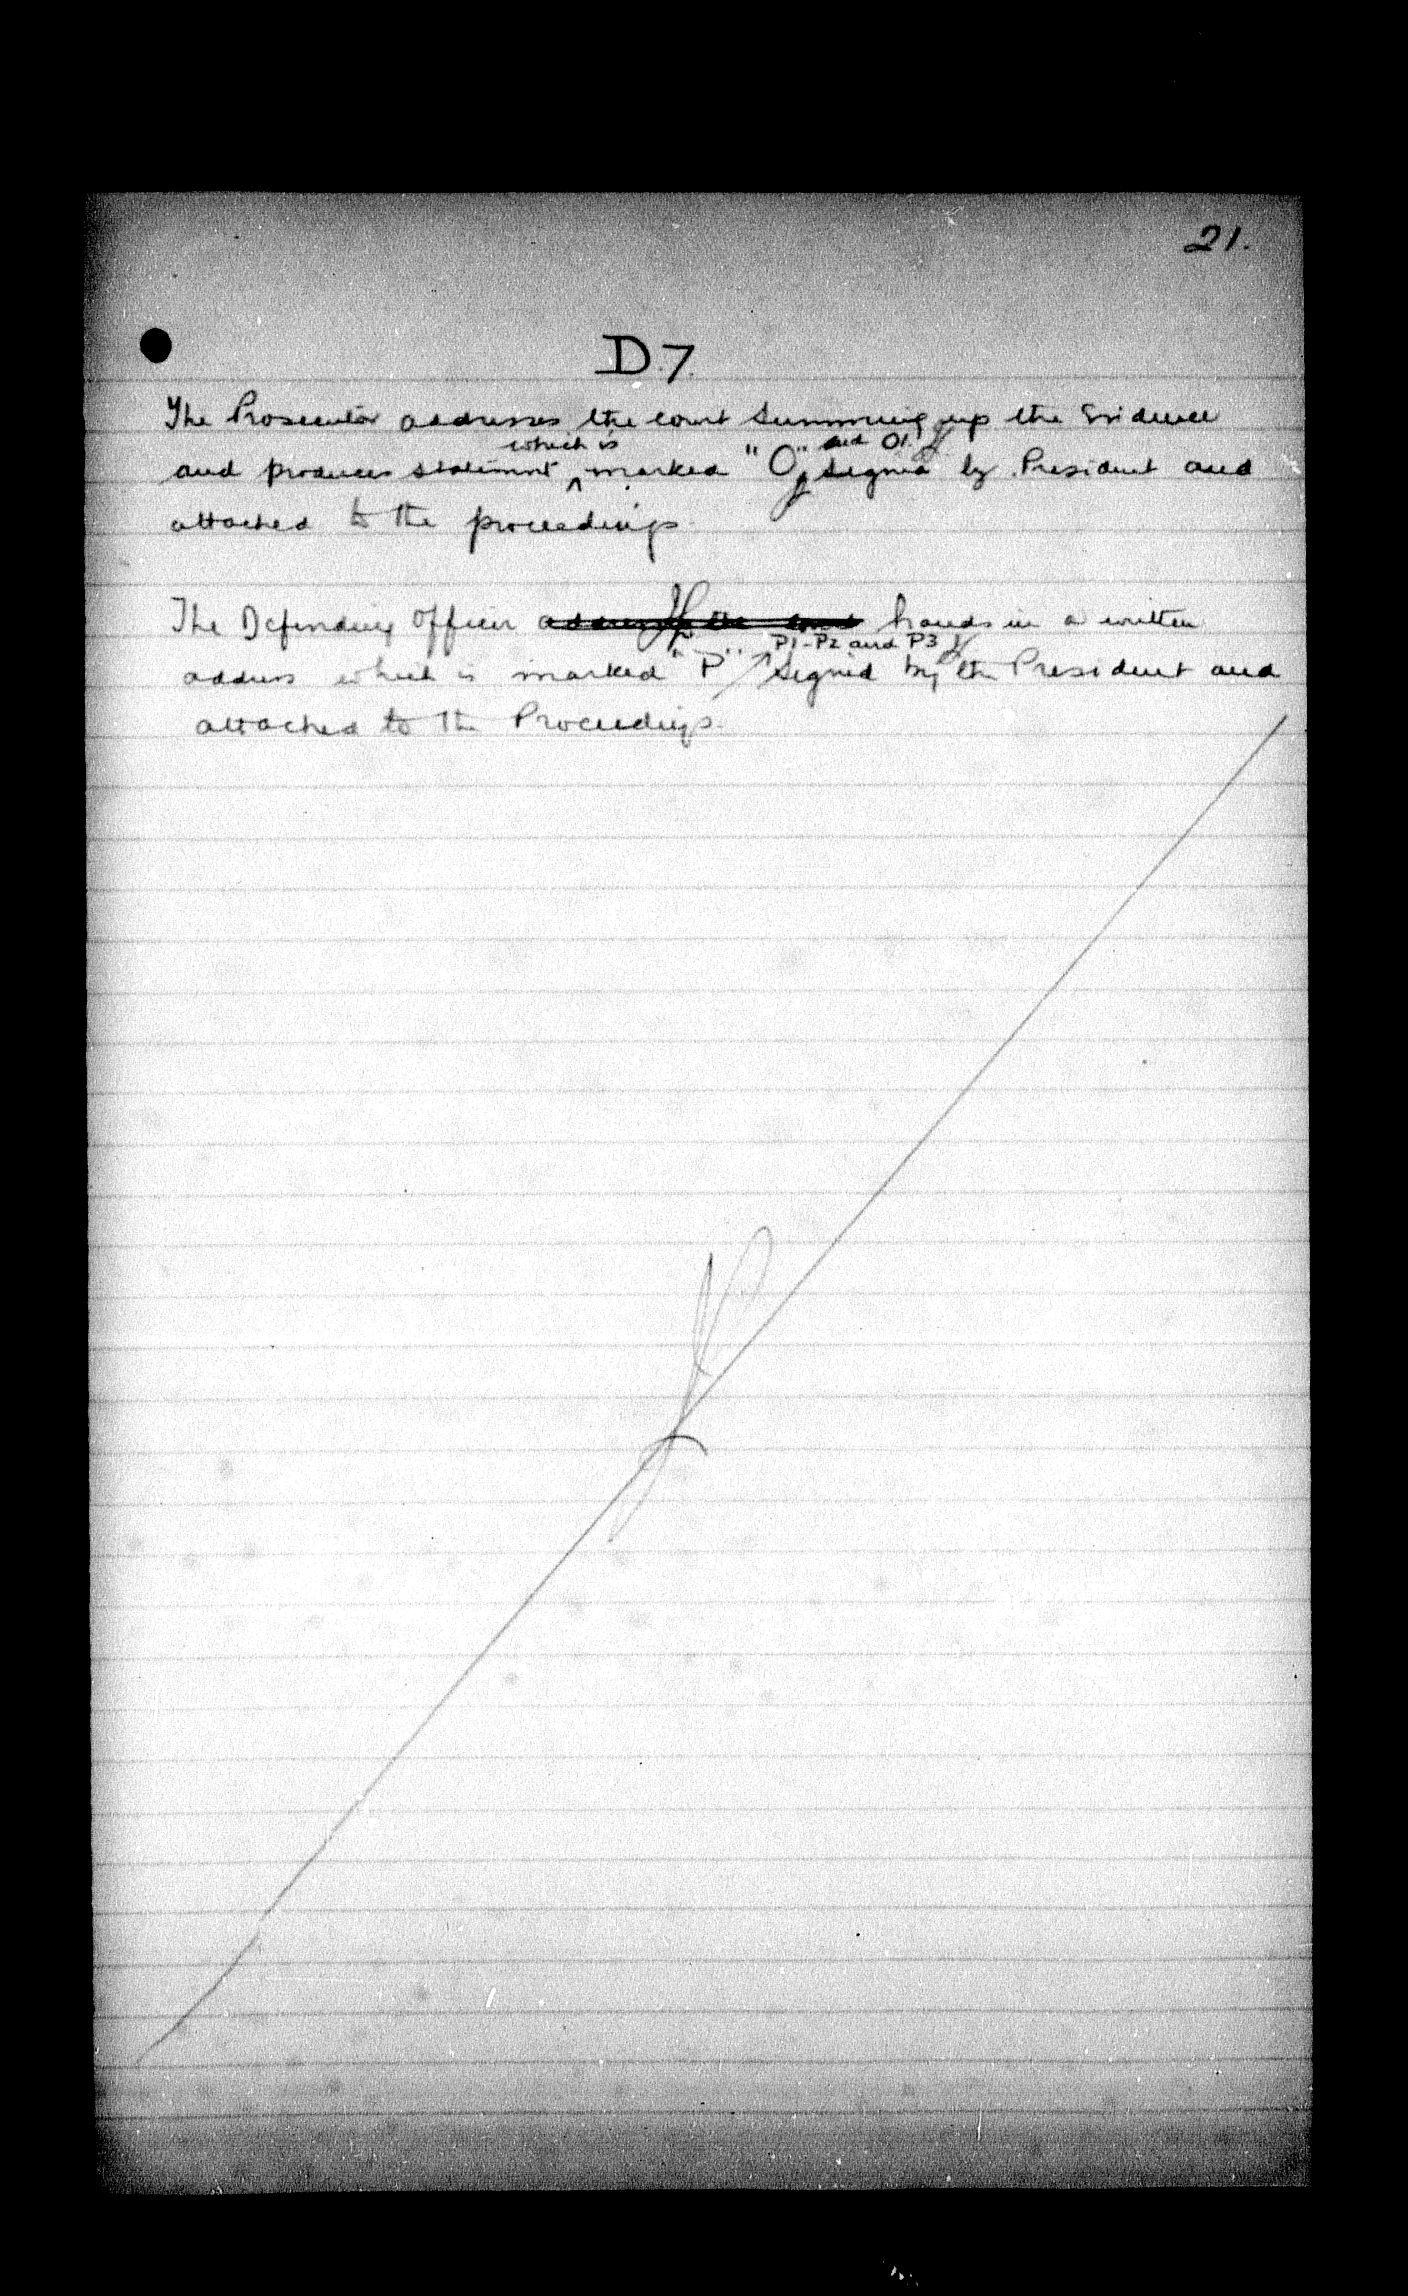 21.
D.7.
The Prosecutor addresses the court summing up the Evidence
which is and O1.
and produces statement marked "O" signed by President and
attached to the proceedings.
The Defending Officer addresses the court hands in a written
P1-P2 and P3
address which is marked "P" signed by the President and
attached to the Proceedings.